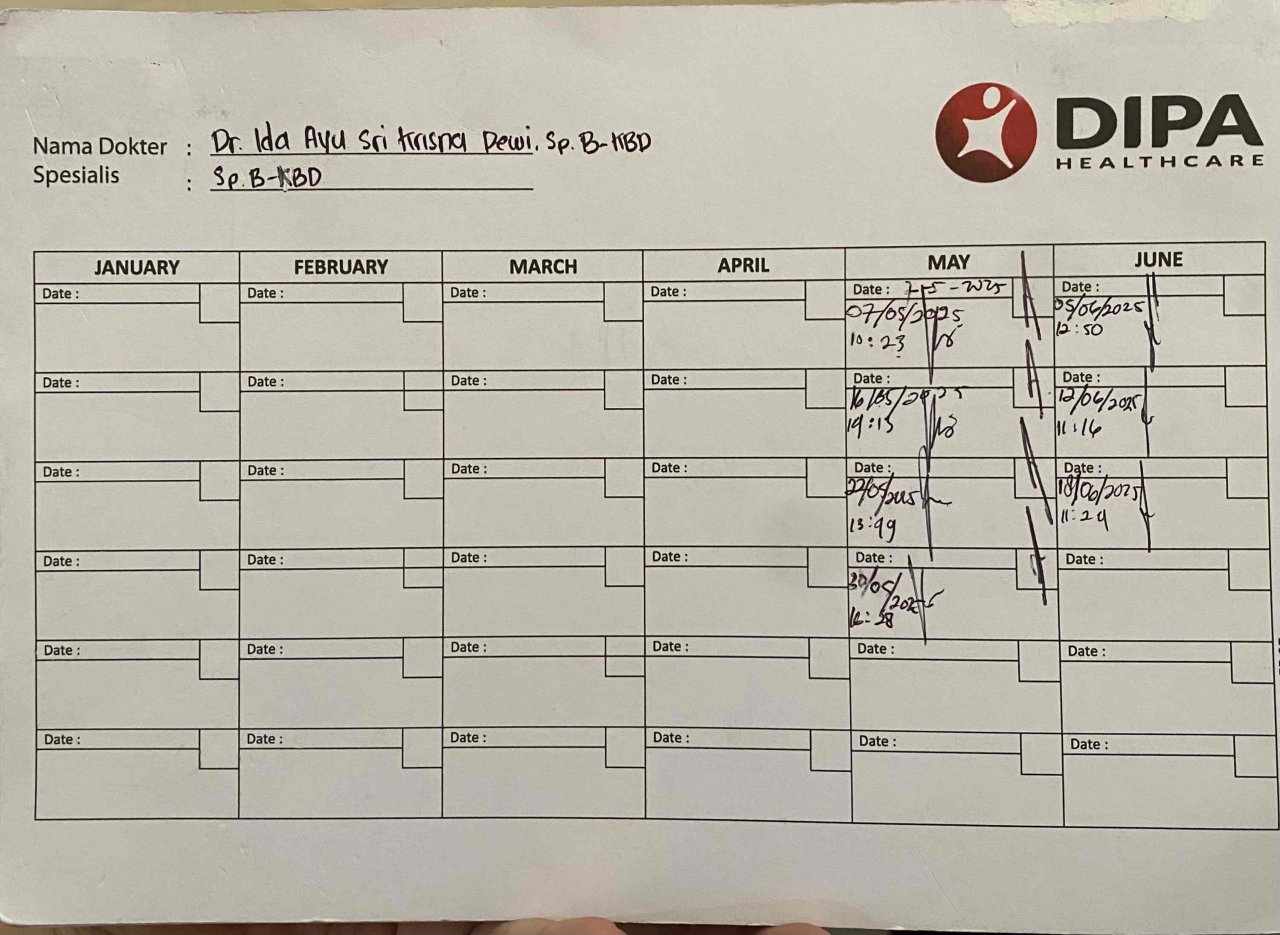 DIPA
HEALTHCARE
Nama Dokter : Dr. Ida Ayu Sri Krisna Dewi. Sp. B-KBD
Spesialis : Sp. B-KBD
JANUARY FEBRUARY MARCH APRIL MAY JUNE
Date : Date : Date : Date : Date : 7-5-2025 Date :
07/05/2025 05/06/2025
10:23 12:50
Date : Date : Date : Date : Date : Date :
16/05/2025 12/06/2025
19:13 11:16
Date : Date : Date : Date : Date : Date :
22/05/2025 18/06/2025
11:29
Date : Date : Date : Date : Date : Date :
30/05/2025
Date : Date : Date : Date : Date : Date :
Date : Date : Date : Date : Date : Date :